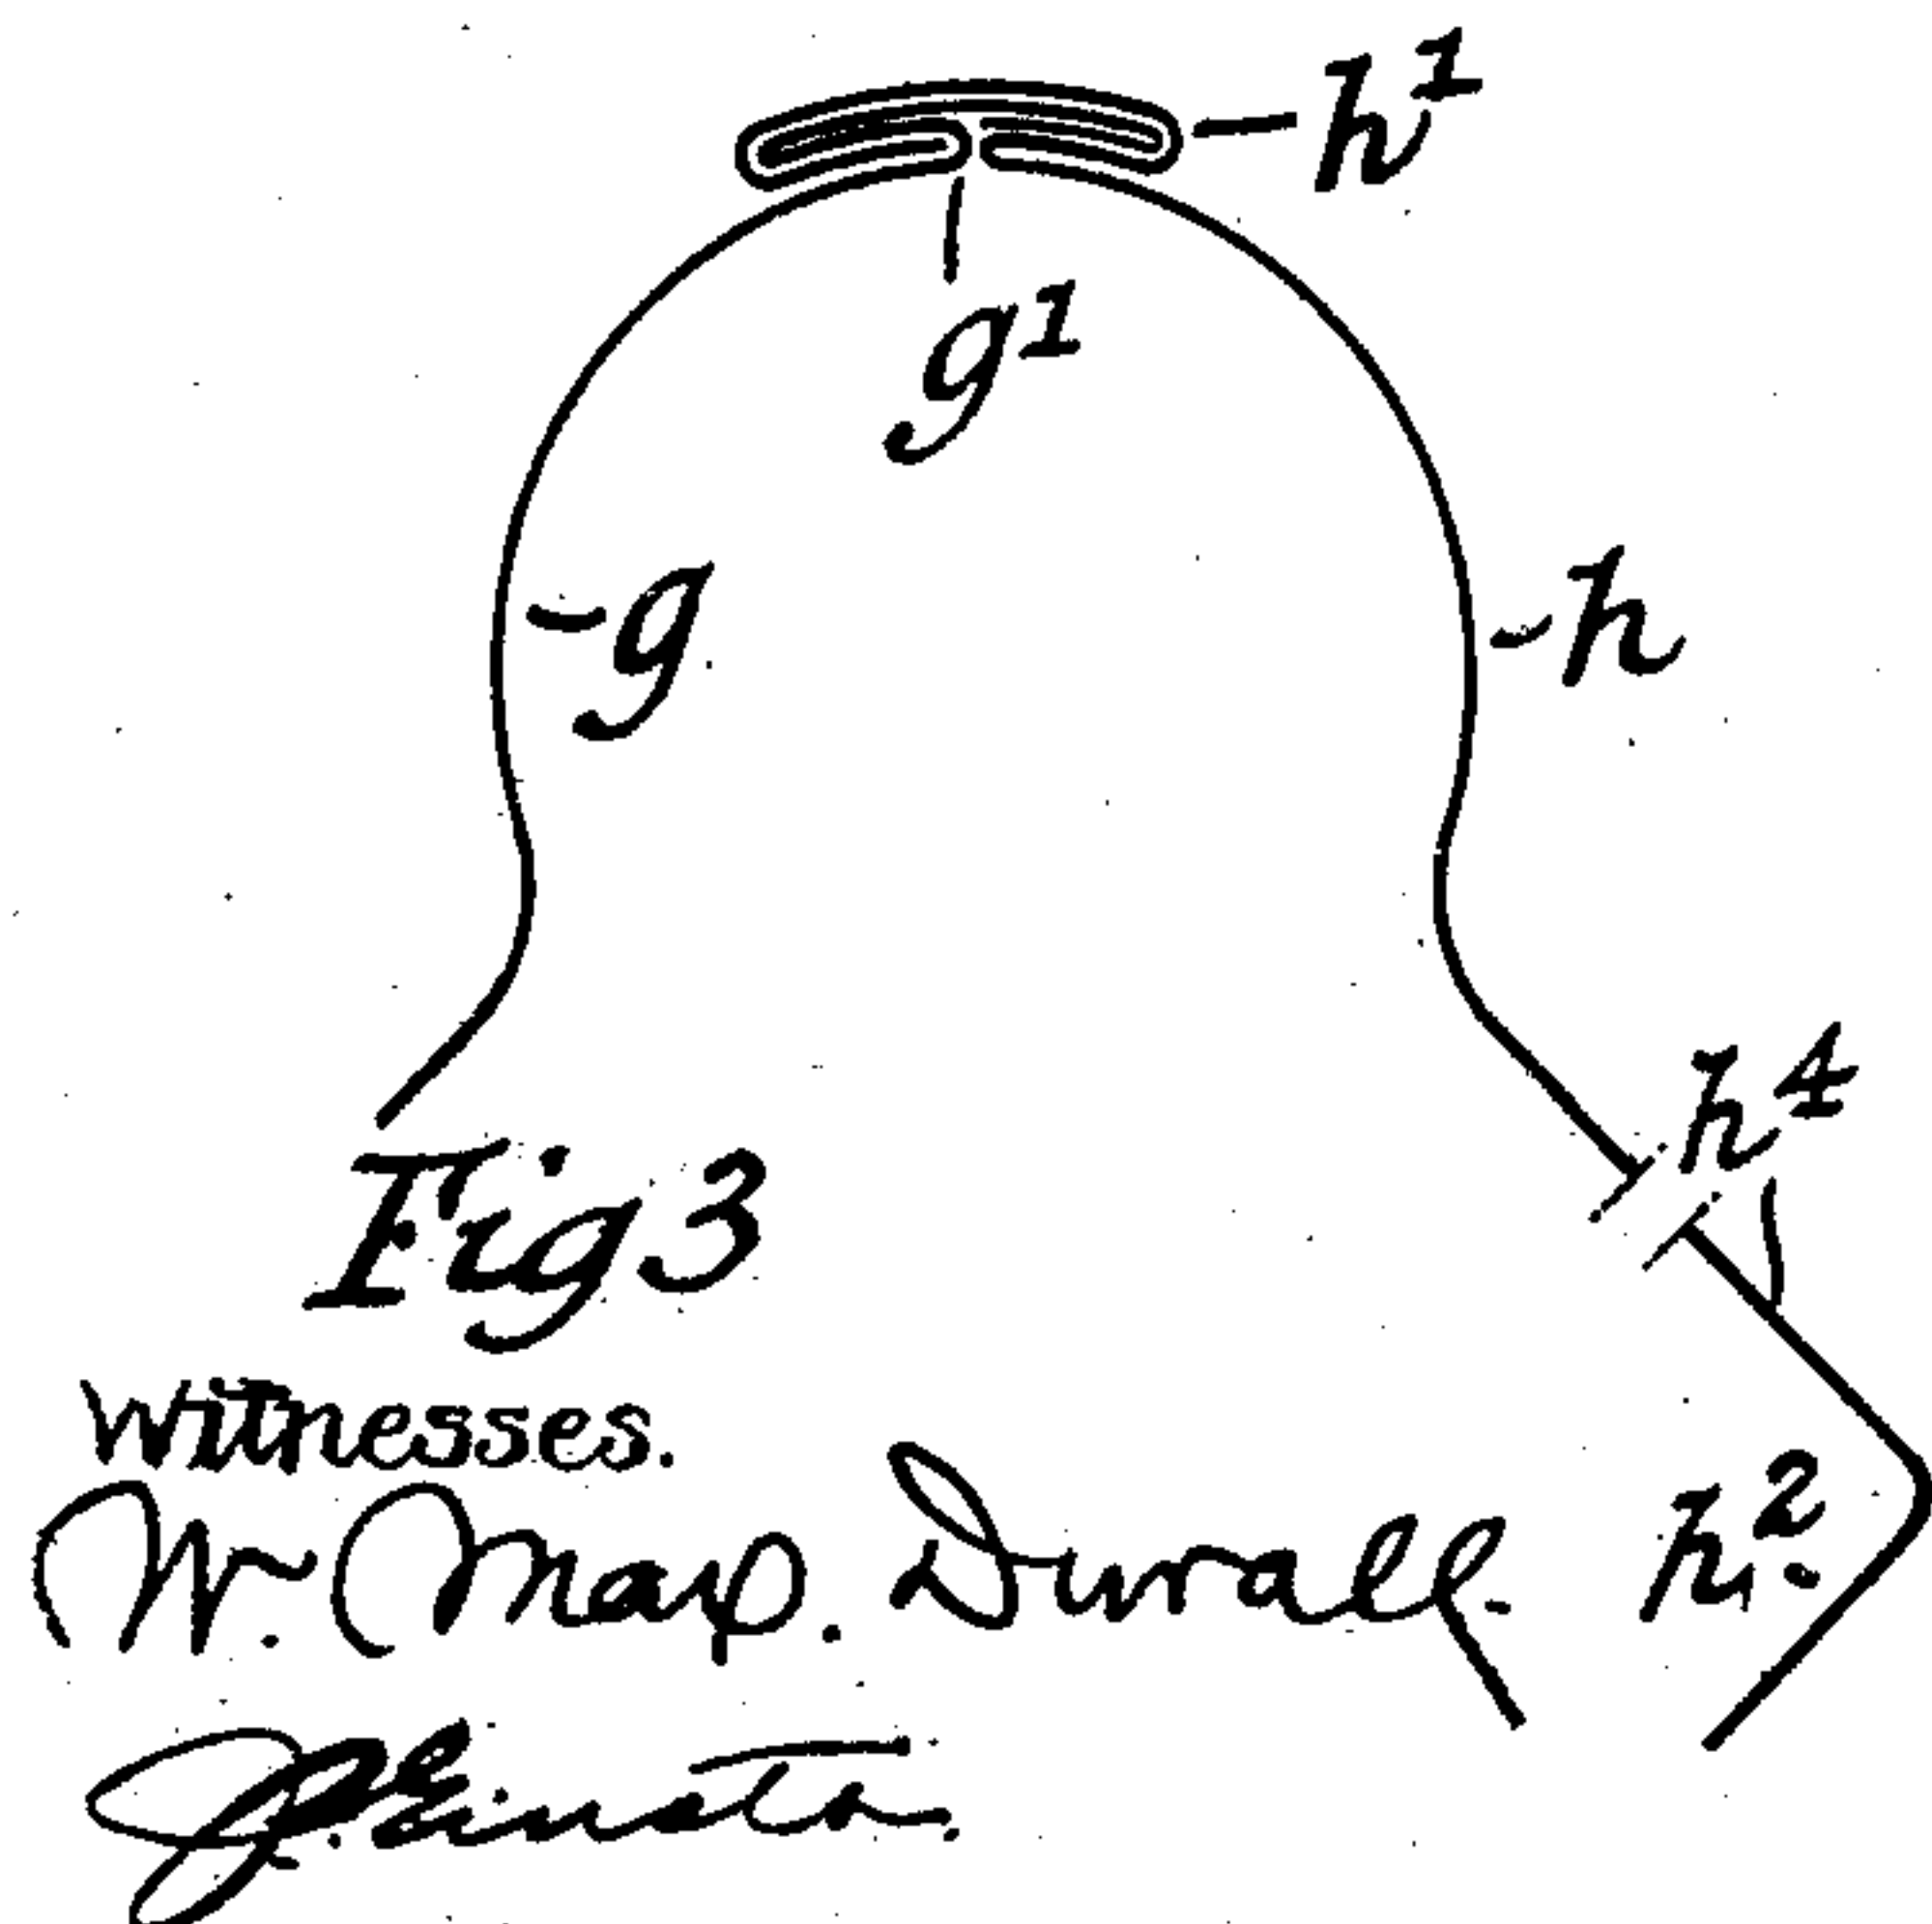 h¹
g¹
g
h
h⁴
Fig 3
witnesses.
h²
W. Max. Duvall.